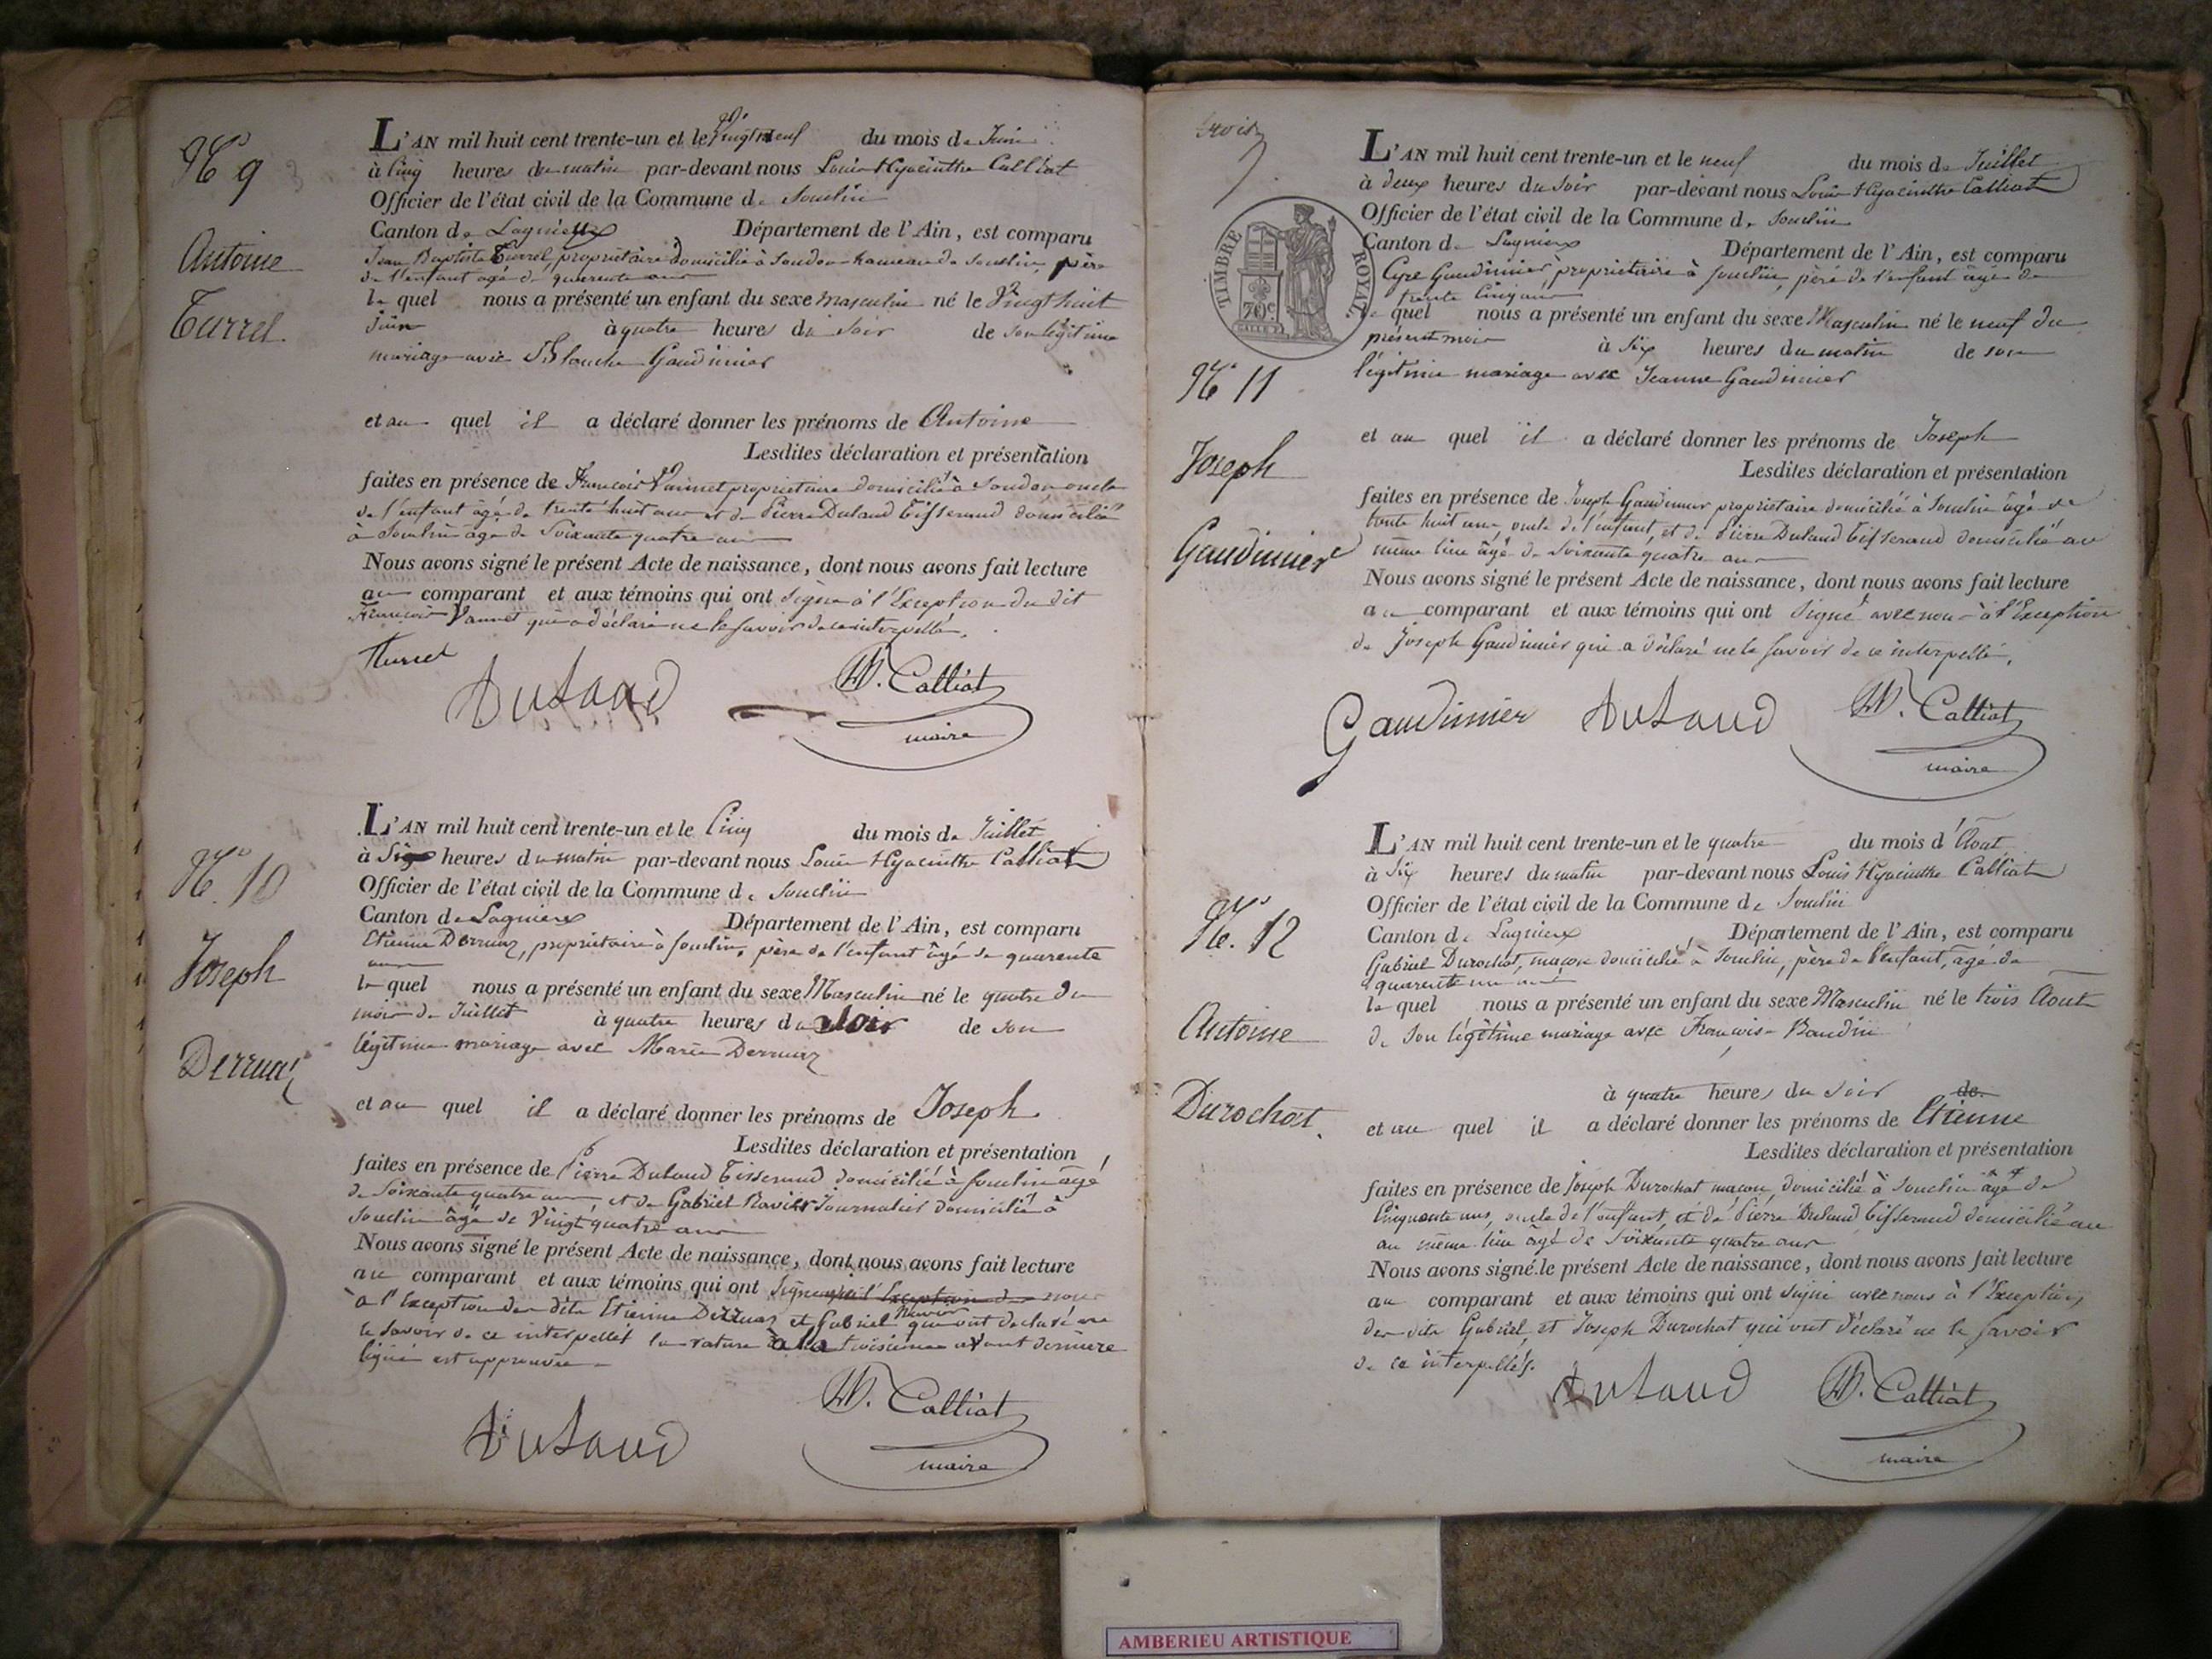 N° 9
Antoine
Turrel
L'AN mil huit cent trente-un et le Vingt neuf du mois de Juin
à Cinq heures du matin par-devant nous Louis Hyacinthe Calliat
Officier de l'état civil de la Commune de Souclin
Canton de Lagnieux Département de l'Ain, est comparu
Jean Baptiste Turrel, propriétaire domicilié à Soudon hameau de Souclin, père
de l'enfant agé de quarente ans
le quel nous a présenté un enfant du sexe masculin né le Vingt huit
Juin à quatre heures du Soir de son légitime
mariage avec Gaudinier
et au quel il a déclaré donner les prénoms de Antoine
Lesdites déclaration et présentation
faites en présence de François Vannet propriétaire domicilié à Soudon oncle
de l'enfant âgé de trente huit ans et de Pierre Dulaud Tisserand domicilié
à Souclin âgé de Soixante quatre ans
Nous avons signé le présent Acte de naissance, dont nous avons fait lecture
au comparant et aux témoins qui ont signé à l'Exception du dit
François Vannet qui a déclaré ne le savoir de ce interpellé.
Turrel
Dulaud
H. Calliat
maire
N° 10
Joseph
Derruaz
L'AN mil huit cent trente-un et le Cinq du mois de Juillet
à Six heures du matin par-devant nous Louis Hyacinthe Calliat
Officier de l'état civil de la Commune de Souclin
Canton de Lagnieux Département de l'Ain, est comparu
Etienne Derruaz, propriétaire à Souclin, père de l'enfant âgé de quarente
ans
le quel nous a présenté un enfant du sexe Masculin né le quatre du
mois de Juillet à quatre heures du soir de son
légitime mariage avec Marie Derruaz
et au quel il a déclaré donner les prénoms de Joseph
Lesdites déclaration et présentation
faites en présence de Pierre Dulaud Tisserand domicilié à Souclin âgé
de Soixante quatre ans et de Gabriel Ravier Journalier domicilié à
Souclin âgé de Vingt quatre ans
Nous avons signé le présent Acte de naissance, dont nous avons fait lecture
au comparant et aux témoins qui ont signé à l'Exception des nous
à l'Exception des dits Etienne Derruaz et Gabriel Ravier qui ont déclaré ne
le savoir de ce interpellés la rature à la troisième avant dernière
ligne est approuvée
Dulaud
H. Calliat
maire
trois
TIMBRE ROYAL
70c
N° 11
Joseph
Gaudinier
L'AN mil huit cent trente-un et le neuf du mois de Juillet
à deux heures du Soir par-devant nous Louis Hyacinthe Calliat
Officier de l'état civil de la Commune de Souclin
Canton de Lagnieux Département de l'Ain, est comparu
Cyre Gaudinier, propriétaire à Souclin, père de l'enfant âgé de
trente Cinq ans
le quel nous a présenté un enfant du sexe Masculin né le neuf du
présent mois à Six heures du matin de son
légitime mariage avec Jeanne Gaudinier
et au quel il a déclaré donner les prénoms de Joseph
Lesdites déclaration et présentation
faites en présence de Joseph Gaudinier propriétaire domicilié à Souclin âgé de
trente huit ans, oncle de l'enfant, et de Pierre Dulaud Tisserand domicilié au
même lieu âgé de Soixante quatre ans
Nous avons signé le présent Acte de naissance, dont nous avons fait lecture
au comparant et aux témoins qui ont Signé avec nous à l'Exception
de Joseph Gaudinier qui a déclaré ne le savoir de ce interpellé.
Gaudinier
Dulaud
H. Calliat
maire
N° 12
Antoine
Durochat.
L'AN mil huit cent trente-un et le quatre du mois d'Aout
à Six heures du matin par-devant nous Louis Hyacinthe Calliat
Officier de l'état civil de la Commune de Souclin
Canton de Lagnieux Département de l'Ain, est comparu
Gabriel Durochat, maçon domicilié à Souclin, père de l'enfant, âgé de
quarente un ans
le quel nous a présenté un enfant du sexe Masculin né le trois Aout
de son légitime mariage avec Françoise Baudin
à quatre heures du Soir de
et au quel il a déclaré donner les prénoms de Etienne
Lesdites déclaration et présentation
faites en présence de Joseph Durochat maçon domicilié à Souclin âgé de
Cinquante ans, oncle de l'enfant, et de Pierre Dulaud Tisserand domicilié au
au même lieu âgé de Soixante quatre ans
Nous avons signé le présent Acte de naissance, dont nous avons fait lecture
au comparant et aux témoins qui ont signé avec nous à l'Exception
des dits Gabriel et Joseph Durochat qui ont déclaré ne le savoir
de ce interpellés.
Dulaud
H. Calliat
maire
AMBERIEU ARTISTIQUE